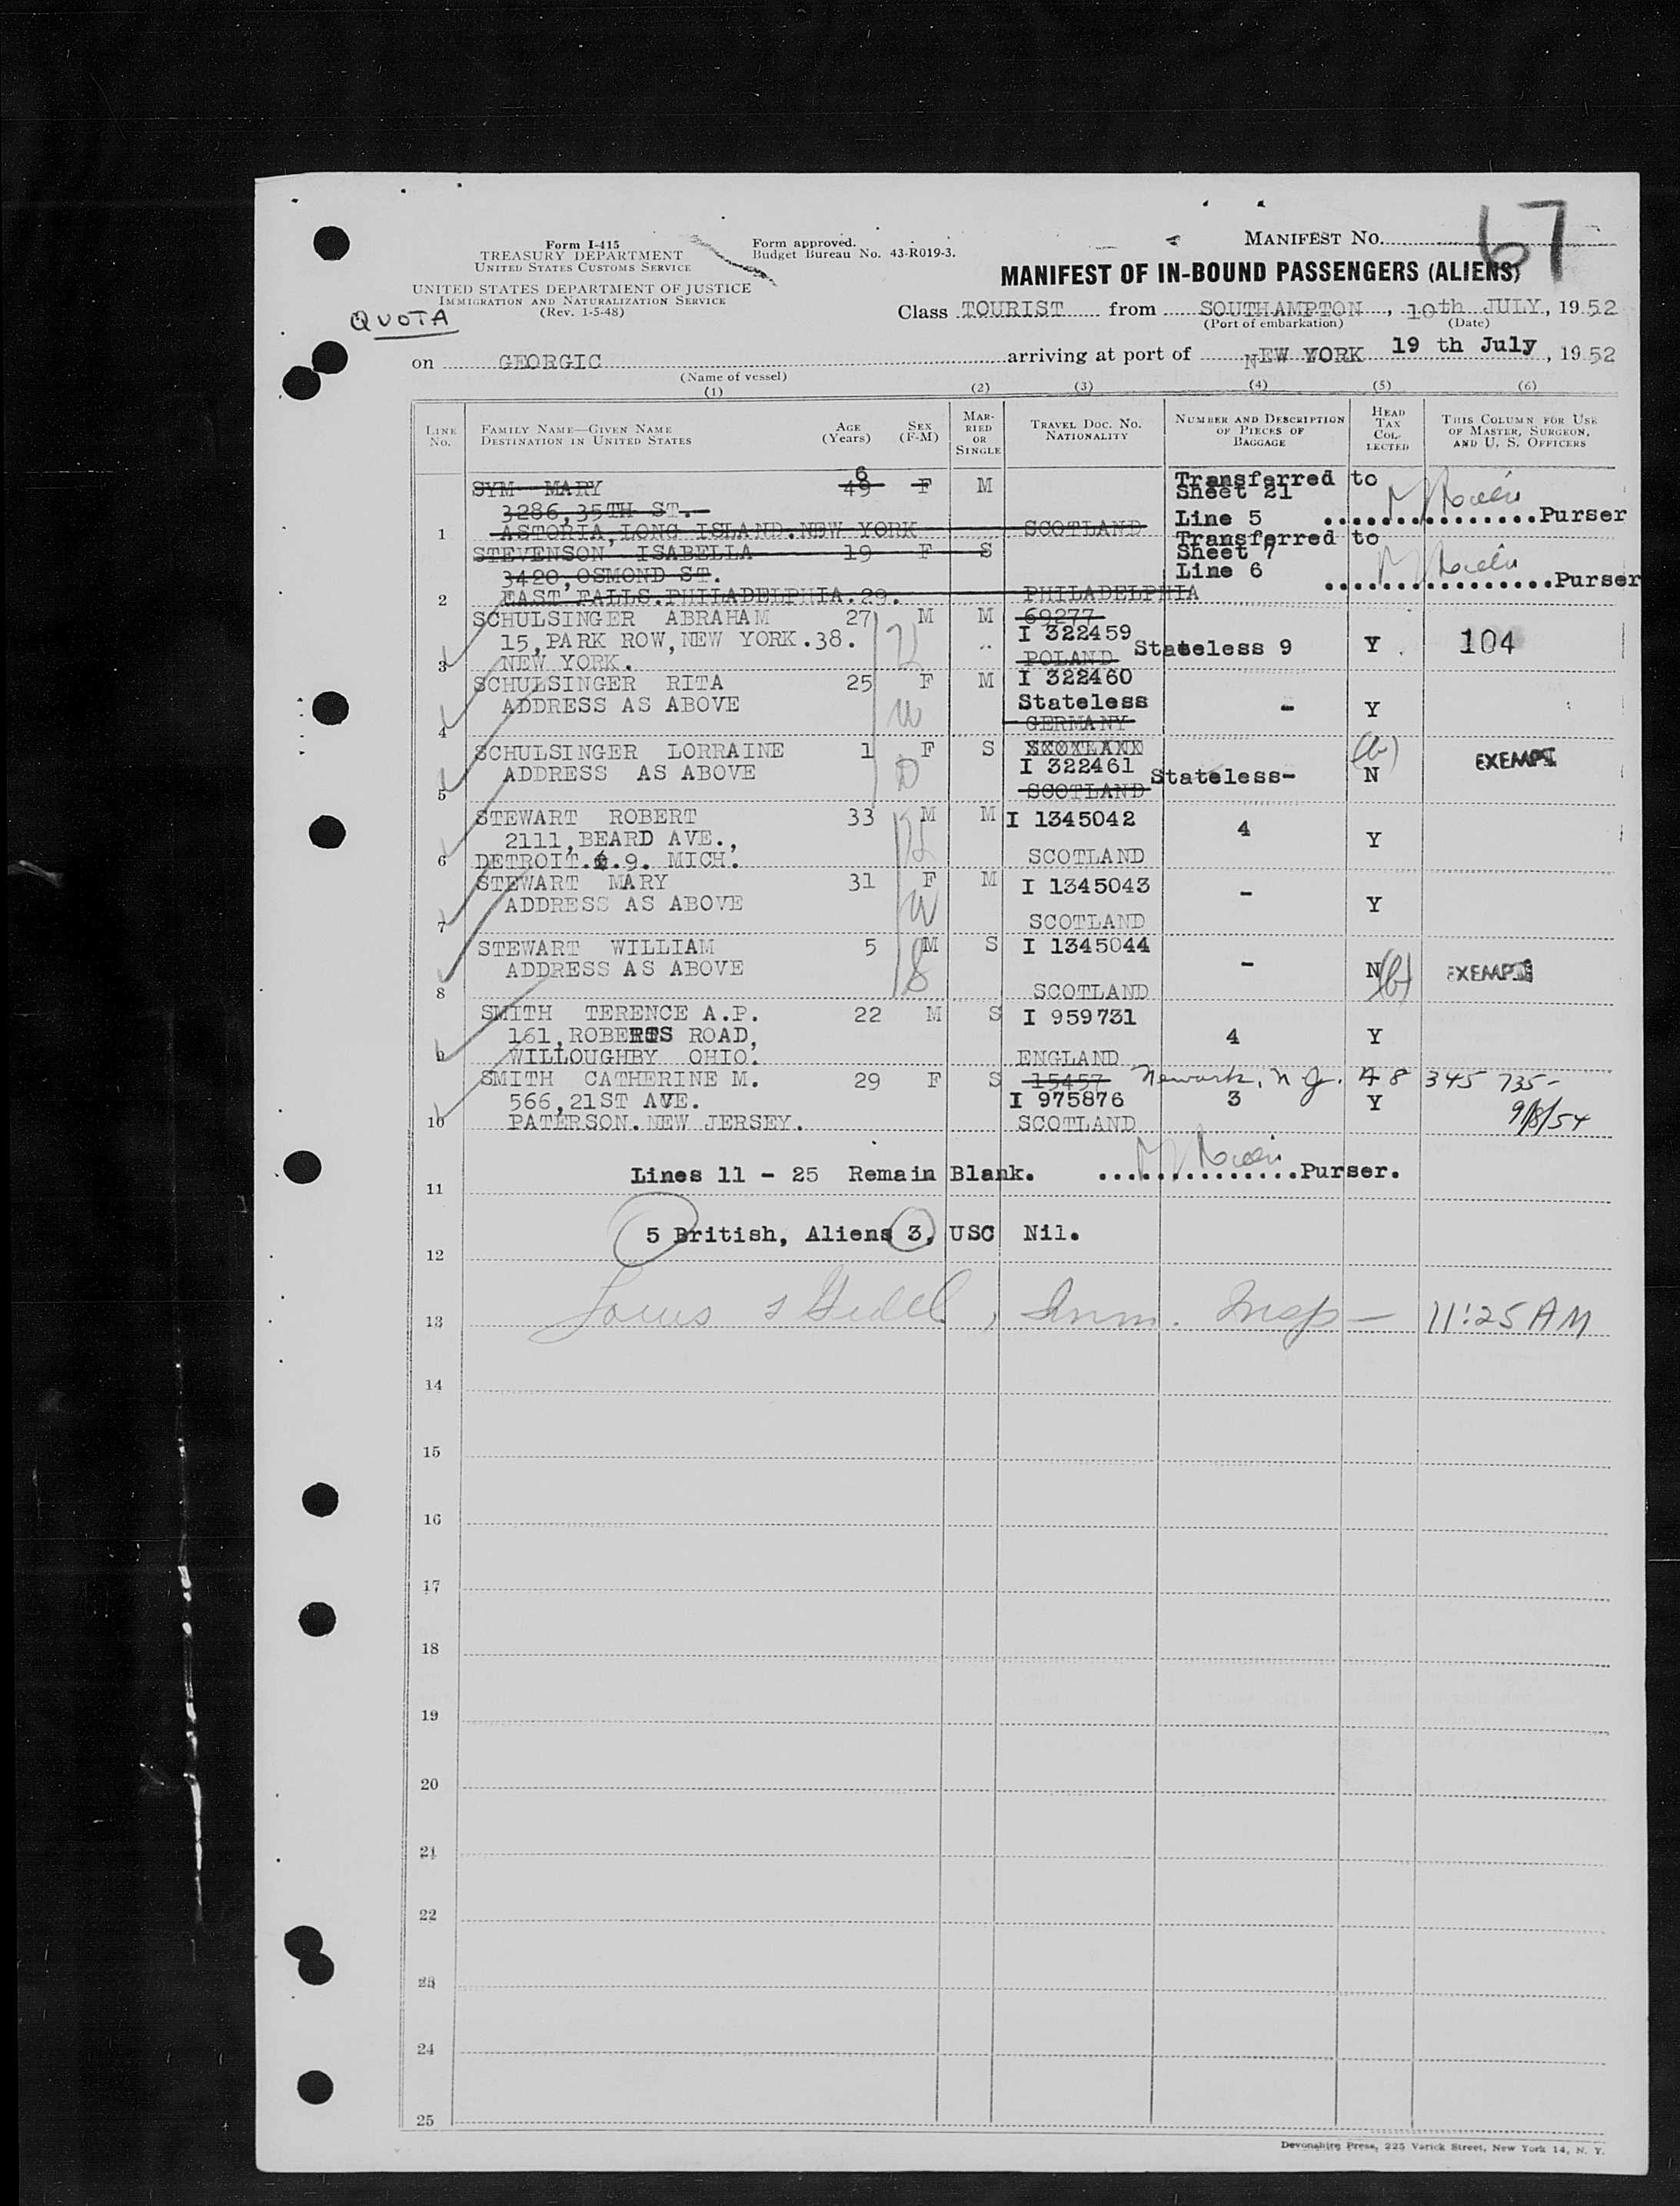 67
Form I-415
TREASURY DEPARTMENT
UNITED STATES CUSTOMS SERVICE
Form approved.
Budget Bureau No. 43-R019-3.
MANIFEST NO.
UNITED STATES DEPARTMENT OF JUSTICE
IMMIGRATION AND NATURALIZATION SERVICE
(Rev. 1-5-48)
MANIFEST OF IN-BOUND PASSENGERS (ALIENS)
QUOTA
Class TOURIST from SOUTHAMPTON, 10th JULY, 1952
(Port of embarkation) (Date)
on GEORGIC arriving at port of NEW YORK 19 th July, 1952
(Name of vessel)
(1) (2) (3) (4) (5) (6)
LINE NO. FAMILY NAME—GIVEN NAME DESTINATION IN UNITED STATES AGE (Years) SEX (F-M) MARRIED OR SINGLE TRAVEL DOC. NO. NATIONALITY NUMBER AND DESCRIPTION OF PIECES OF BAGGAGE HEAD TAX COLLECTED THIS COLUMN FOR USE OF MASTER, SURGEON, AND U. S. OFFICERS
6
SYM MARY 49 F M Transferred to
3286, 35TH ST. Sheet 21
1 ASTORIA, LONG ISLAND. NEW YORK SCOTLAND Line 5 Purser
STEVENSON ISABELLA 19 F S Transferred to
3420, OSMOND ST. Sheet 7
Line 6 Purser
2 EAST FALLS. PHILADELPHIA. 29. PHILADELPHIA
SCHULSINGER ABRAHAM 27 M M 69277
15, PARK ROW, NEW YORK. 38. I 322459
3 NEW YORK. POLAND Stateless 9 Y 104
SCHULSINGER RITA 25 F M I 322460
ADDRESS AS ABOVE W Stateless - Y
4 GERMANY
SCHULSINGER LORRAINE 1 F S SCOTLAND (b) EXEMPT
ADDRESS AS ABOVE D I 322461 Stateless- N
5 SCOTLAND
STEWART ROBERT 33 M M I 1345042
2111, BEARD AVE., 4 Y
6 DETROIT. 9. MICH. SCOTLAND
STEWART MARY 31 F M I 1345043 -
ADDRESS AS ABOVE W Y
7 SCOTLAND
STEWART WILLIAM 5 M S I 1345044
ADDRESS AS ABOVE S - N (b) EXEMPT
8 SCOTLAND
SMITH TERENCE A.P. 22 M S I 959731
161, ROBERTS ROAD, 4 Y
9 WILLOUGHBY OHIO. ENGLAND
SMITH CATHERINE M. 29 F S 15457 Newark, N.J. A 8 345 735-
566, 21ST AVE. I 975876 3 Y 9/8/54
10 PATERSON. NEW JERSEY. SCOTLAND
11 Lines 11 - 25 Remain Blank. Purser.
12 5 British, Aliens 3, USC Nil.
13 Imm. Insp — 11:25 AM
14
15
16
17
18
19
20
21
22
23
24
25
Devonshire Press, 225 Varick Street, New York 14, N. Y.